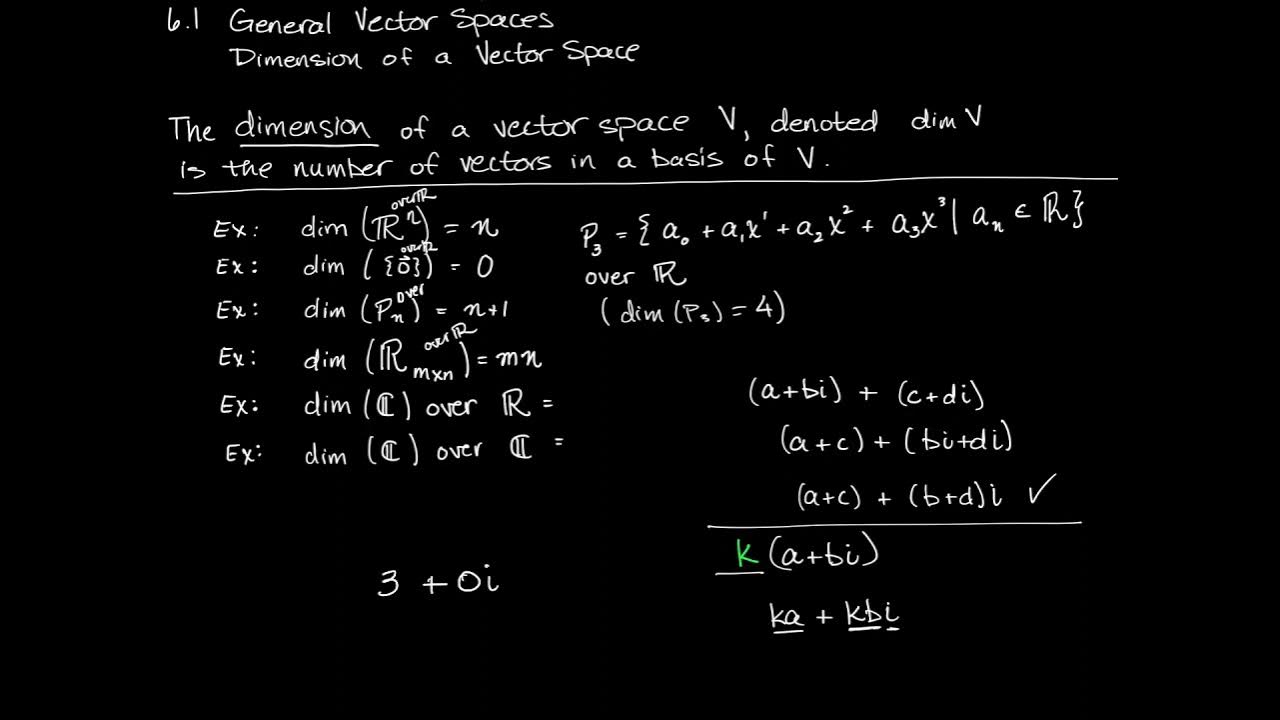 6.1 General Vector Spaces
Dimension of a Vector Space
The dimension of a vector space V, denoted dim V
is the number of vectors in a basis of V.
Ex: dim (ℝⁿ over ℝ) = n
Ex: dim ({0⃗} over ℝ) = 0
Ex: dim (Pₙ over) = n+1
Ex: dim (ℝₘₓₙ over ℝ) = mn
Ex: dim (ℂ) over ℝ =
Ex: dim (ℂ) over ℂ =
3 + 0i
P₃ = { a₀ + a₁x¹ + a₂x² + a₃x³ | aₙ ∈ ℝ}
over ℝ
(dim (P₃) = 4)
(a+bi) + (c+di)
(a+c) + (bi+di)
(a+c) + (b+d)i ✓
k(a+bi)
ka + kbi